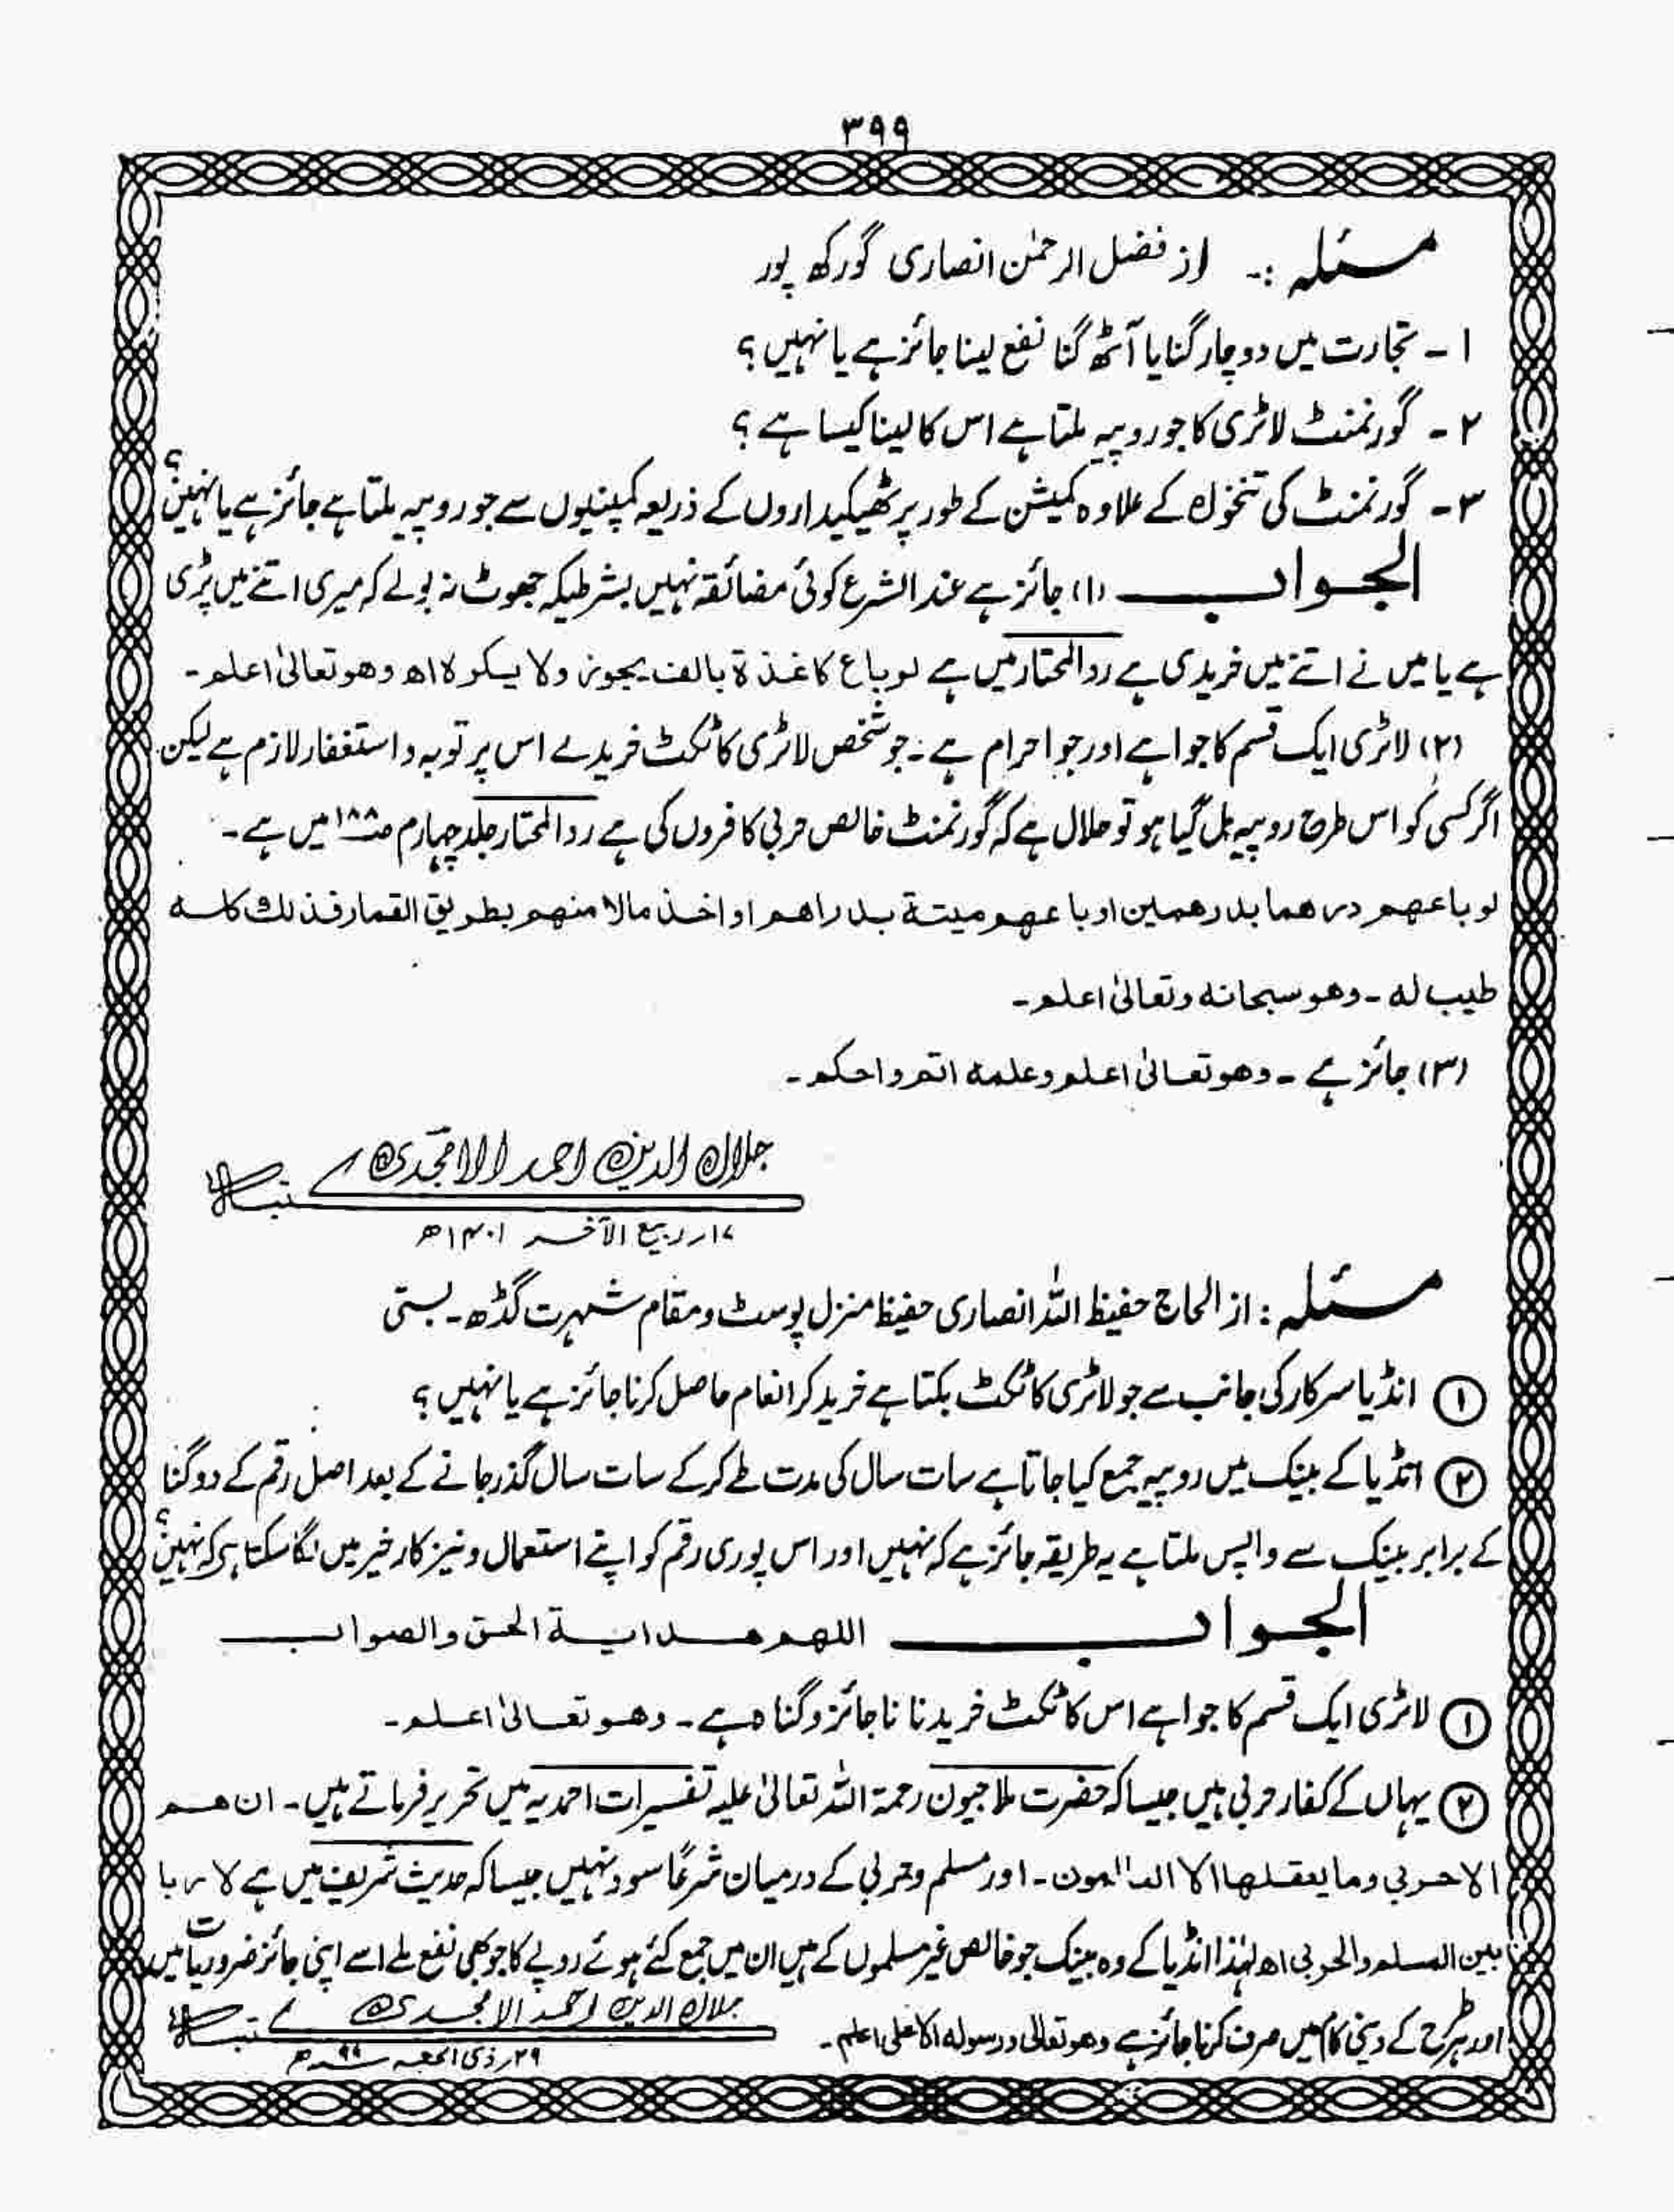 ۳۹۹
مسئلہ :۔ از فضل الرحمٰن انصاری گورکھ پور
۱ ۔ تجارت میں دو چار گنا یا آٹھ گنا نفع لینا جائز ہے یا نہیں ؟
۲ ۔ گورنمنٹ لاٹری کا جو روپیہ ملتا ہے اس کا لینا کیسا ہے ؟
۳ ۔ گورنمنٹ کی تنخواہ کے علاوہ کمیشن کے طور پر ٹھیکیداروں کے ذریعہ کمپنیوں سے جو روپیہ ملتا ہے جائز ہے یا نہیں ؟
الجواب (۱) جائز ہے عند الشرع کوئی مضائقہ نہیں بشرطیکہ جھوٹ نہ بولے کہ میری اتنے میں پڑی
ہے یا میں نے اتنے میں خریدی ہے ردالمحتار میں ہے لو باع کاغذة بالف یجوز ولا یکرہ اھ وھو تعالیٰ اعلم ۔
(۲) لاٹری ایک قسم کا جوا ہے اور جوا حرام ہے ۔ جو شخص لاٹری کا ٹکٹ خریدے اس پر توبہ و استغفار لازم ہے لیکن
اگر کسی کو اس طرح روپیہ مل گیا ہو تو حلال ہے کہ گورنمنٹ خالص حربی کافروں کی ہے ردالمحتار جلد چہارم ص۱۸۸ میں ہے ۔
لو باعھم درھما بدرھمین او باعھم میتة بدراھم او اخذ مالا منھم بطریق القمار فذلك کله
طیب له ۔ وھو سبحانه وتعالیٰ اعلم ۔
(۳) جائز ہے ۔ وھو تعالیٰ اعلم وعلمه اتم واحکم ۔
جلال الدین احمد الامجدی کتبہ
۱۷؍ ربیع الآخر ۱۴۰۱ھ
مسئلہ : از الحاج حفیظ اللہ انصاری حفیظ منزل پوسٹ و مقام شہرت گڈھ ۔ بستی
① انڈیا سرکار کی جانب سے جو لاٹری کا ٹکٹ بکتا ہے خرید کر انعام حاصل کرنا جائز ہے یا نہیں ؟
② انڈیا کے بینک میں روپیہ جمع کیا جاتا ہے سات سال کی مدت طے کرکے سات سال گذر جانے کے بعد اصل رقم کے دوگنا
کے برابر بینک سے واپس ملتا ہے یہ طریقہ جائز ہے کہ نہیں اور اس پوری رقم کو اپنے استعمال و نیز کار خیر میں لگا سکتا ہے کہ نہیں ؟
الجواب اللھم ھدایة الحق والصواب
① لاٹری ایک قسم کا جوا ہے اس کا ٹکٹ خریدنا ناجائز و گناہ ہے ۔ وھو تعالیٰ اعلم ۔
② یہاں کے کفار حربی ہیں جیسا کہ حضرت ملا جیون رحمة اللہ تعالیٰ علیہ تفسیرات احمدیہ میں تحریر فرماتے ہیں ۔ ان ھم
الا حربی وما یعقلھا الا العالمون ۔ اور مسلم و حربی کے درمیان شرعًا سود نہیں جیسا کہ حدیث شریف میں ہے لا ربا
بین المسلم والحربی اھ لہٰذا انڈیا کے وہ بینک جو خالص غیر مسلموں کے ہیں ان میں جمع کئے ہوئے روپے کا جو بھی نفع ملے اسے اپنی جائز ضروریات میں
اور ہر طرح کے دینی کام میں صرف کرنا جائز ہے وھو تعالیٰ ورسوله الاعلیٰ اعلم ۔
جلال الدین احمد الامجدی کتبہ
۲۹؍ ذی الحجہ ۹۹ھ